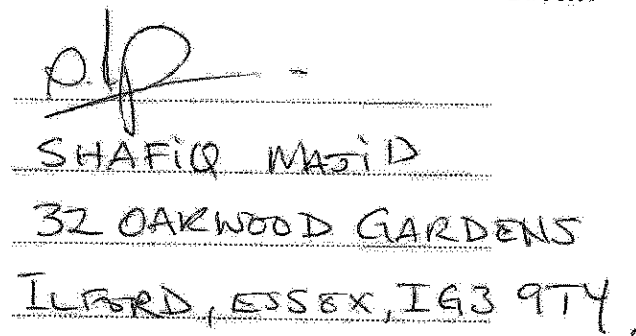 SHAFiQ MAJiD
32 OAKWOOD GARDENS
ILFORD, ESSEX, IG3 9TY.